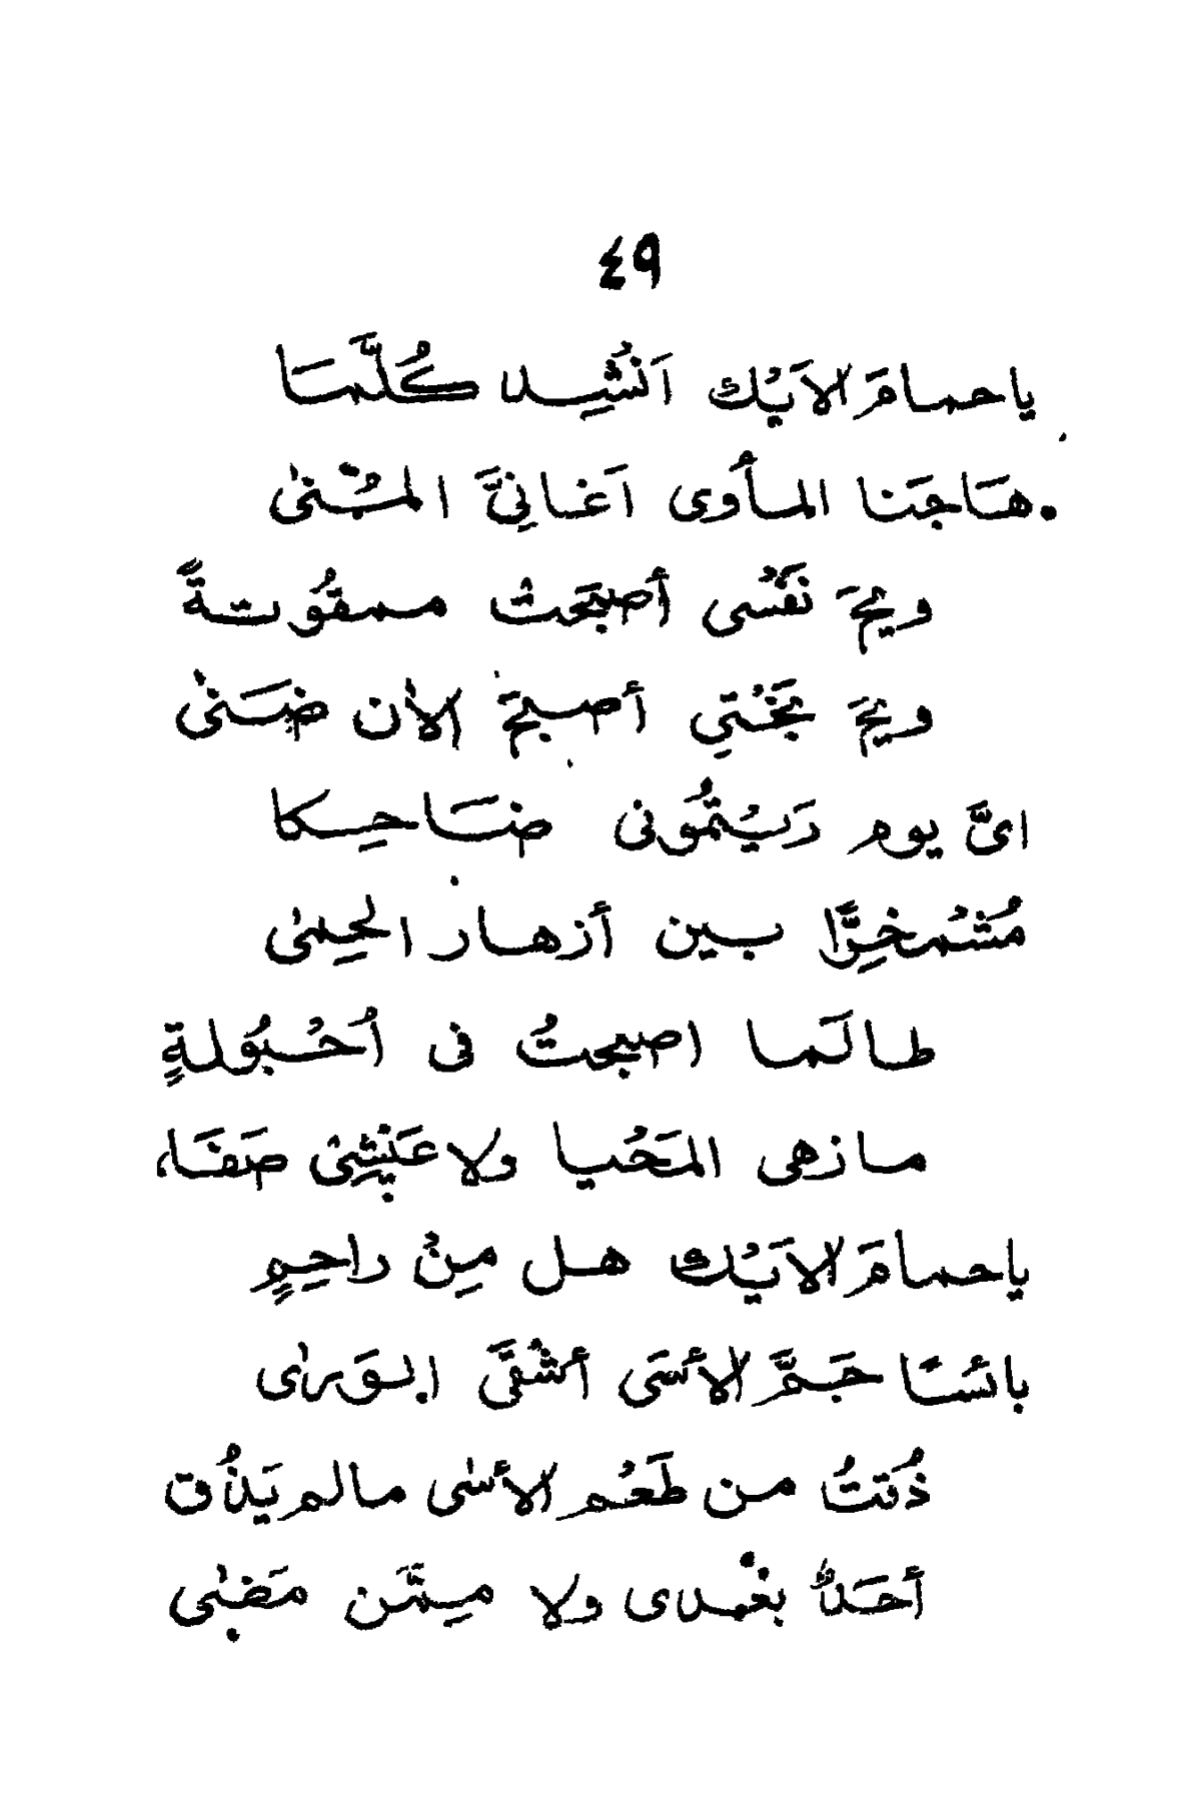 ٤٩
ياحمامَ الاَيْك اَنْشِد كُلَّمَا
هَاجَنا المأوى اَغانِىَّ المُنىٰ
ويحَ نَفْسى أصبَحتْ ممقُوتةً
ويحَ بَخْتِي أصبحَ الاٰن ضَنىٰ
اىَّ يوم رَيْتُمُونى ضَاحِكا
مُشْمَخِرًّا بين أزهار الحِمىٰ
طالَما اصبحتُ فى اُحْبُولةٍ
مازهى المَحْيا ولا عَيْشِىْ صَفَا
ياحمامَ الاَيْك هل مِنْ راحِمٍ
بائسًا جَمَّ الأسَى أشْقَى الوَرىٰ
ذُقتُ من طَعْم الأسٰى مالم يَذُق
أحَدٌ بعْدى ولا مِمَّن مَضٰى